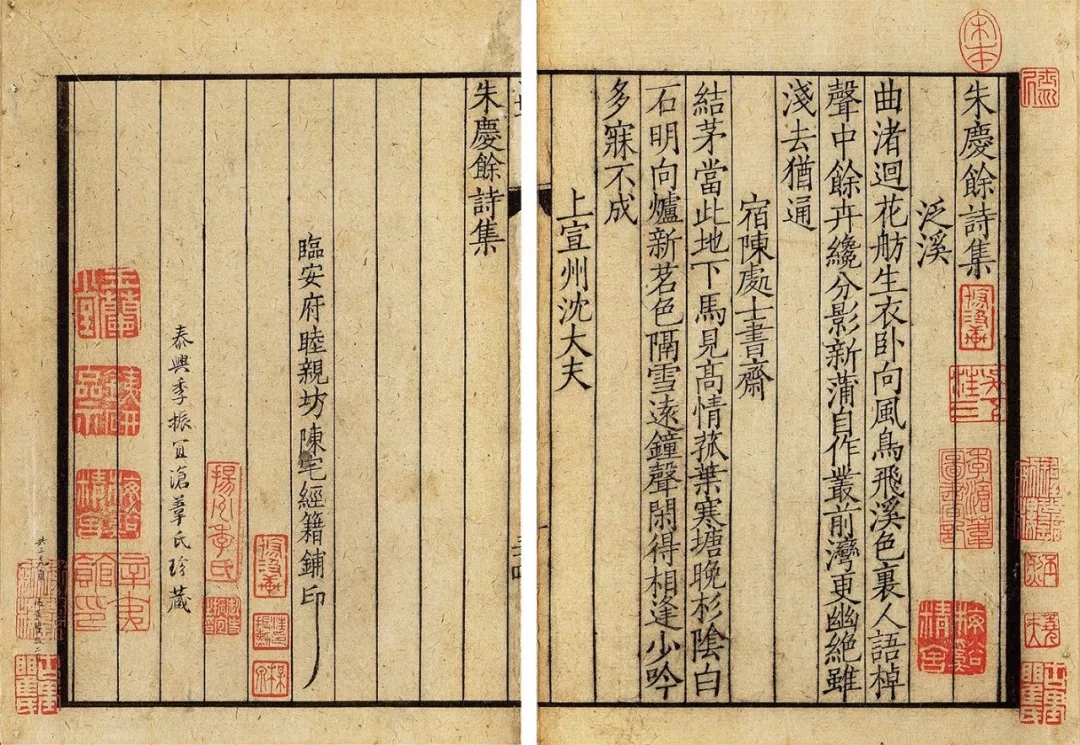 宋本
朱慶餘詩集
泛溪
曲渚迴花舫生衣卧向風鳥飛溪色裏人語棹
聲中餘卉纔分影新蒲自作叢前灣更幽絶雖
淺去猶通
宿陳處士書齋
結茅當此地下馬見高情菰葉寒塘晚杉陰白
石明向爐新茗色隔雪遠鐘聲閑得相逢少吟
多寐不成
上宣州沈大夫
朱慶餘詩集
臨安府睦親坊陳宅經籍鋪印
揚州季氏
泰興季振宜滄葦氏珍藏